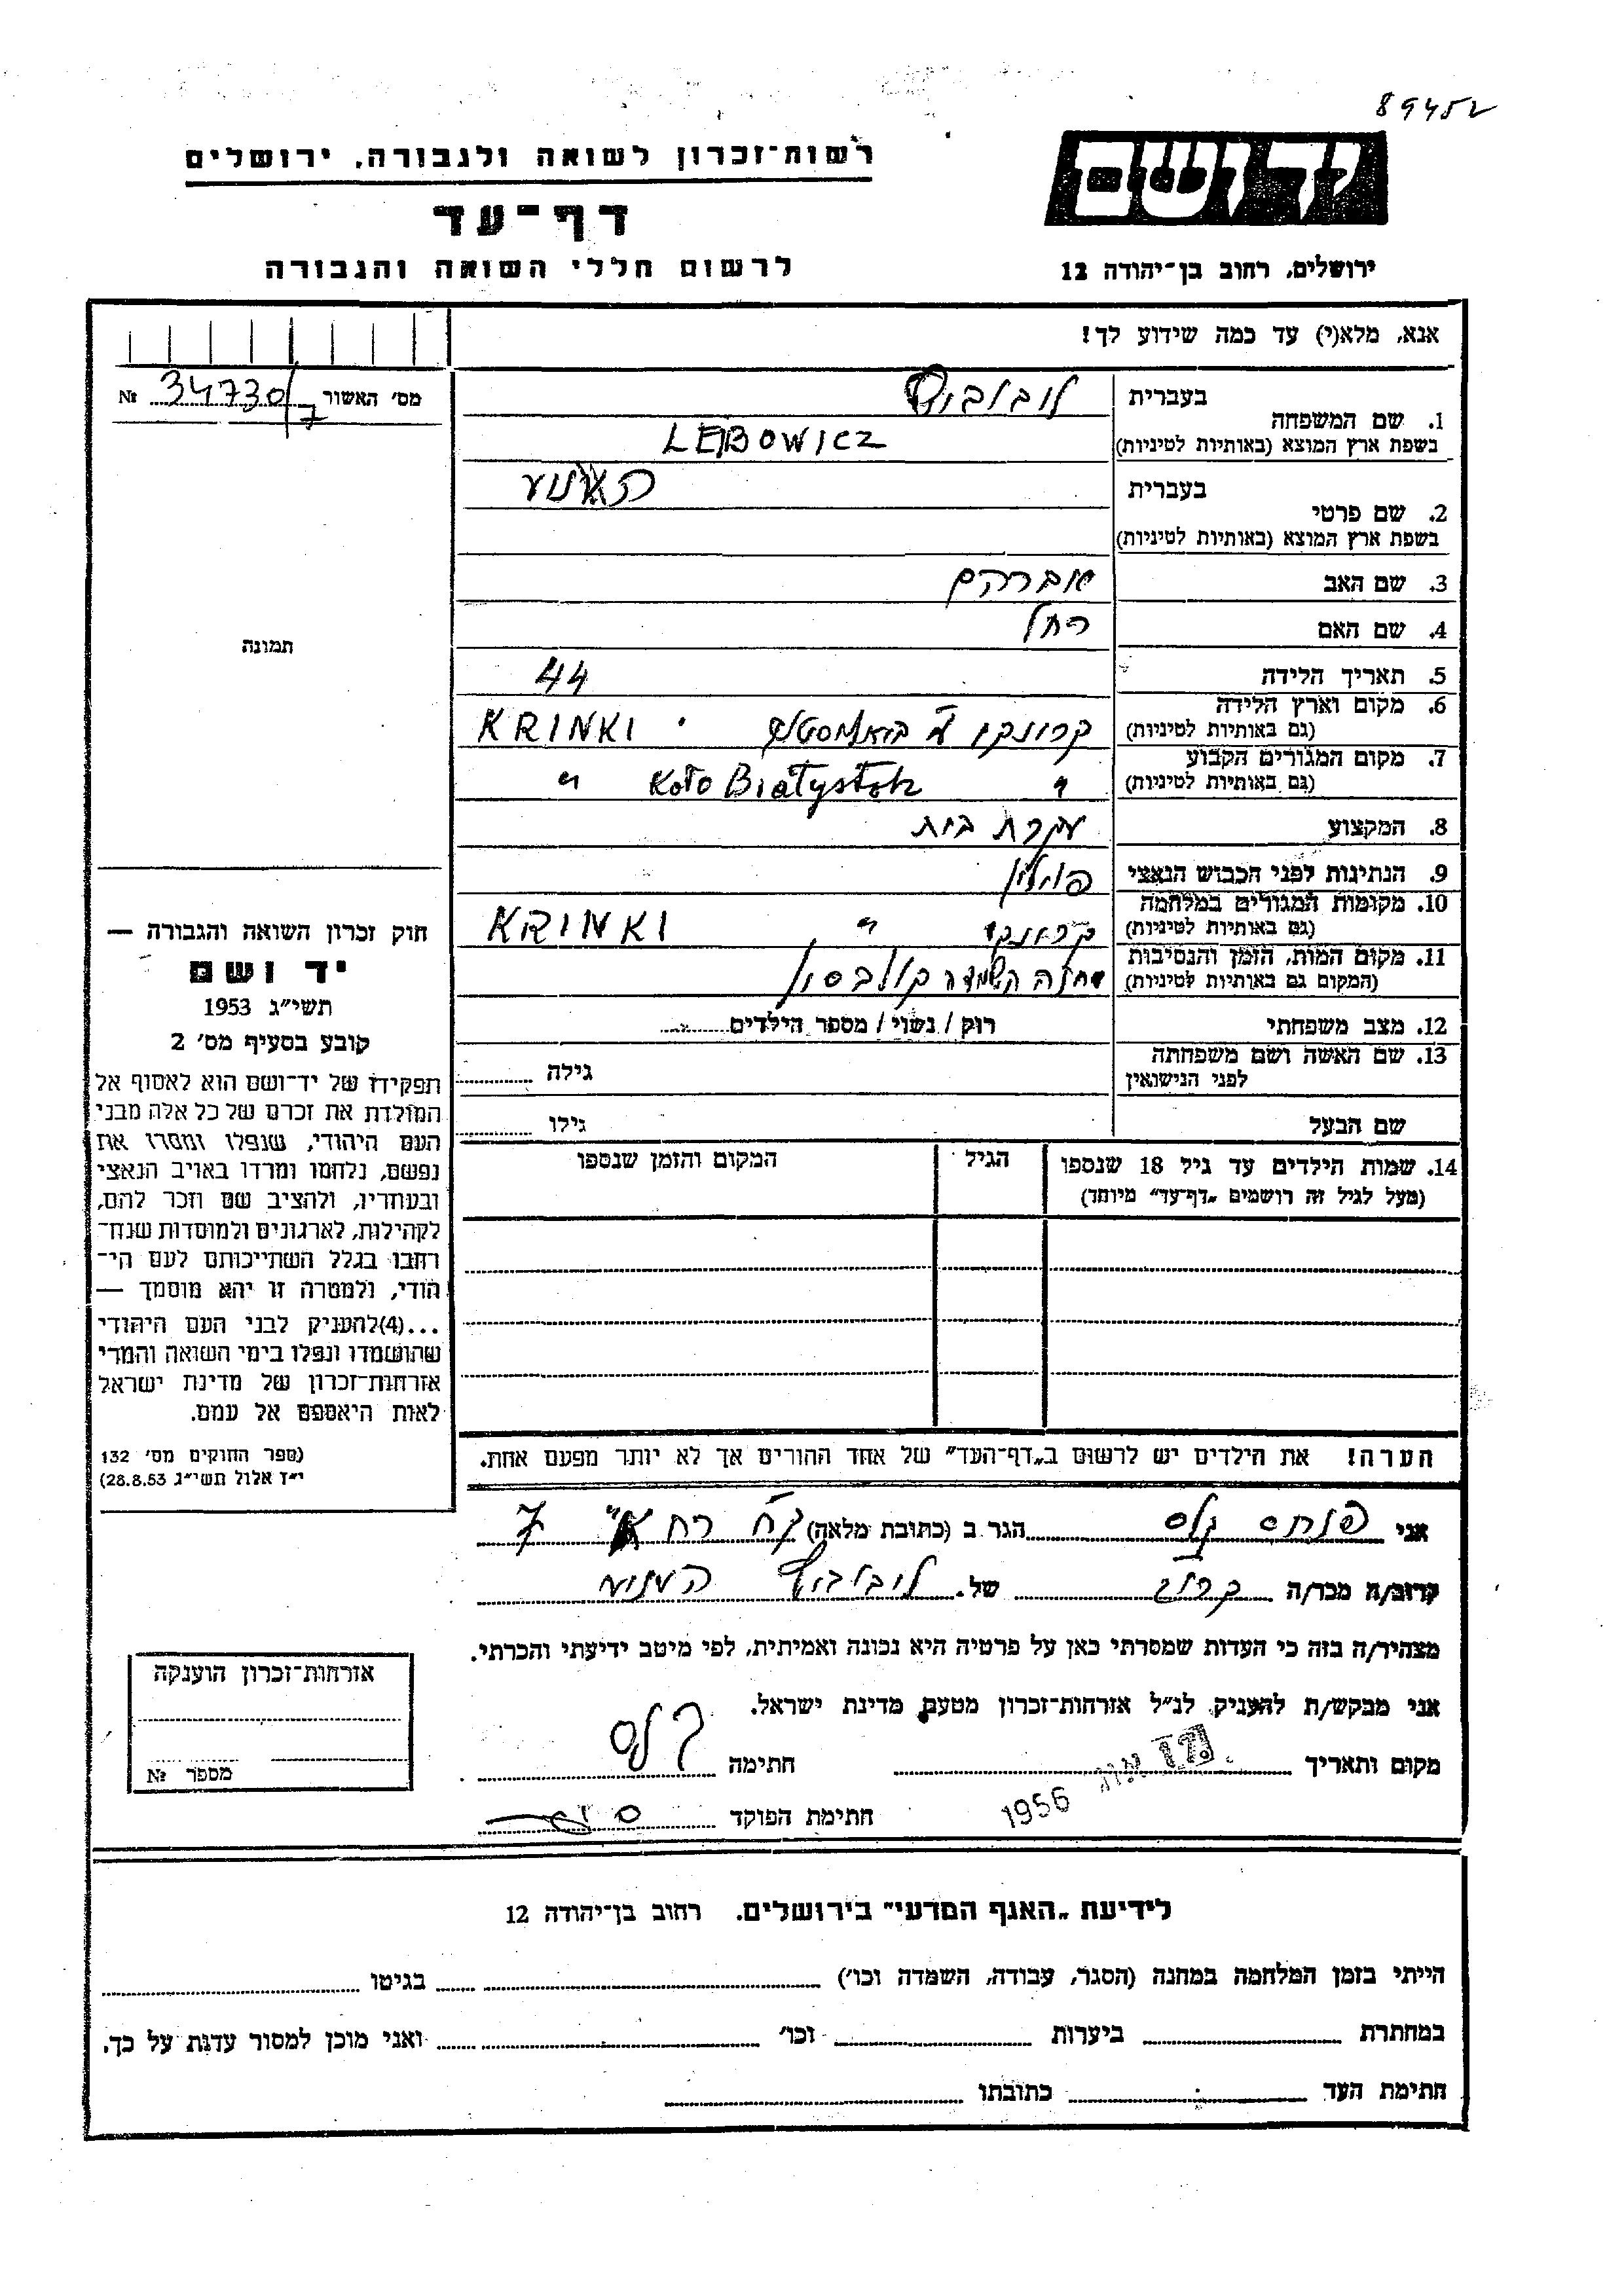 89452
רשות־זכרון לשואה ולגבורה, ירושלים
יד ושם
דף־עד
לרשום חללי השואה והגבורה
ירושלים, רחוב בן־יהודה 12
אנא, מלא(י) עד כמה שידוע לך!
מס׳ האשור № 34730/7
1. שם המשפחה
בעברית
לובוביץ
בשפת ארץ המוצא (באותיות לטיניות) LEBOWICZ
2. שם פרטי
בעברית
בשפת ארץ המוצא (באותיות לטיניות)
3. שם האב אברהם
4. שם האם רחל
תמונה
5. תאריך הלידה 44
6. מקום וארץ הלידה
(גם באותיות לטיניות) קרינקי ע״י ביאליסטוק KRINKI
7. מקום המגורים הקבוע
(גם באותיות לטיניות) " Koło Białystok "
8. המקצוע עקרת בית
9. הנתינות לפני הכבוש הנאצי פולין
10. מקומות המגורים במלחמה
(גם באותיות לטיניות) קרינקי " KRINKI
11. מקום המות, הזמן והנסיבות
(המקום גם באותיות לטיניות) מחנה השמדה קולבסין
12. מצב משפחתי רוק / נשוי / מספר הילדים
13. שם האשה ושם משפחתה
לפני הנישואין גילה
שם הבעל גילו
14. שמות הילדים עד גיל 18 שנספו הגיל המקום והזמן שנספו
(מעל לגיל זה רושמים „דף־עד” מיוחד)
חוק זכרון השואה והגבורה —
יד ושם
תשי״ג 1953
קובע בסעיף מס׳ 2
תפקידו של יד־ושם הוא לאסוף אל
המולדת את זכרם של כל אלה מבני
העם היהודי, שנפלו ומסרו את
נפשם, נלחמו ומרדו באויב הנאצי
ובעוזריו, ולהציב שם וזכר להם,
לקהילות, לארגונים ולמוסדות שנח־
רחבו בגלל השתייכותם לעם הי־
הודי, ולמטרה זו יהא מוסמך —
...(4)להעניק לבני העם היהודי
שהושמדו ונפלו בימי השואה והמרי
אזרחות־זכרון של מדינת ישראל
לאות היאספם אל עמם.
(ספר החוקים מס׳ 132
י״ז אלול תשי״ג 28.8.53)
הערה! את הילדים יש לרשום ב„דף־העד” של אחד ההורים אך לא יותר מפעם אחת.
אני פנחס הגר ב (כתובת מלאה) 7
קרוב/ה מכר/ה קרוב של לובוביץ
מצהיר/ה בזה כי העדות שמסרתי כאן על פרטיה היא נכונה ואמיתית, לפי מיטב ידיעתי והכרתי.
אני מבקש/ת להעניק לנ״ל אזרחות־זכרון מטעם מדינת ישראל.
מקום ותאריך 1956 חתימה
חתימת הפוקד
אזרחות־זכרון הוענקה
מספר №
לידיעת „האגף המדעי” בירושלים. רחוב בן־יהודה 12
הייתי בזמן המלחמה במחנה (הסגר, עבודה, השמדה וכו׳) בגיטו
במחתרת ביערות וכו׳ ואני מוכן למסור עדות על כך.
חתימת העד כתובתו